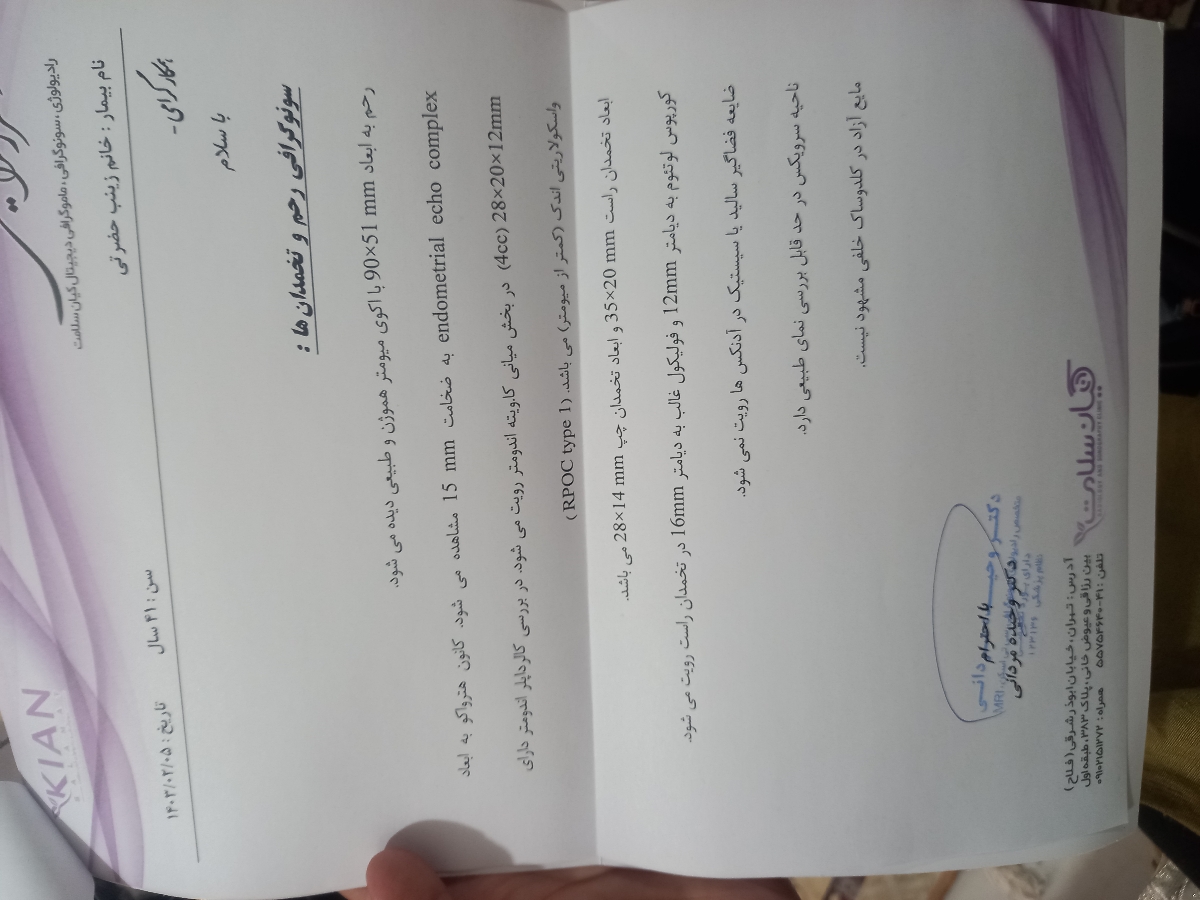 رادیولوژی، سونوگرافی، ماموگرافی دیجیتال کیان سلامت
KIAN
نام بیمار : خانم زینب حضرتی
سن : ۴۱ سال
تاریخ : ۱۴۰۳/۰۲/۰۵
همکار گرامی -
با سلام
سونوگرافی رحم و تخمدان ها :
رحم به ابعاد 90×51 mm با اکوی میومتر هموژن و طبیعی دیده می شود.
endometrial echo complex به ضخامت 15 mm مشاهده می شود. کانون هترواکو به ابعاد
28×20×12mm (4cc) در بخش میانی کاویته اندومتر رویت می شود. در بررسی کالرداپلر اندومتر دارای
واسکولاریتی اندک (کمتر از میومتر) می باشد. (RPOC type 1)
ابعاد تخمدان راست 35×20 mm و ابعاد تخمدان چپ 28×14 mm می باشد.
کورپوس لوتئوم به دیامتر 12mm و فولیکول غالب به دیامتر 16mm در تخمدان راست رویت می شود.
ضایعه فضاگیر سالید یا سیستیک در آدنکس ها رویت نمی شود.
ناحیه سرویکس در حد قابل بررسی نمای طبیعی دارد.
مایع آزاد در کلدوساک خلفی مشهود نیست.
با احترام
دکتر وحیده مردانی
کیان سلامت
آدرس : تهران، خیابان ابوذر شرقی (فلاح)
بین رزاقی و عیوض خانی، پلاک ۳۸۳، طبقه اول
تلفن : ۴۱-۵۵۷۵۴۶۴۰ همراه : ۰۹۱۰۲۱۵۱۲۷۲